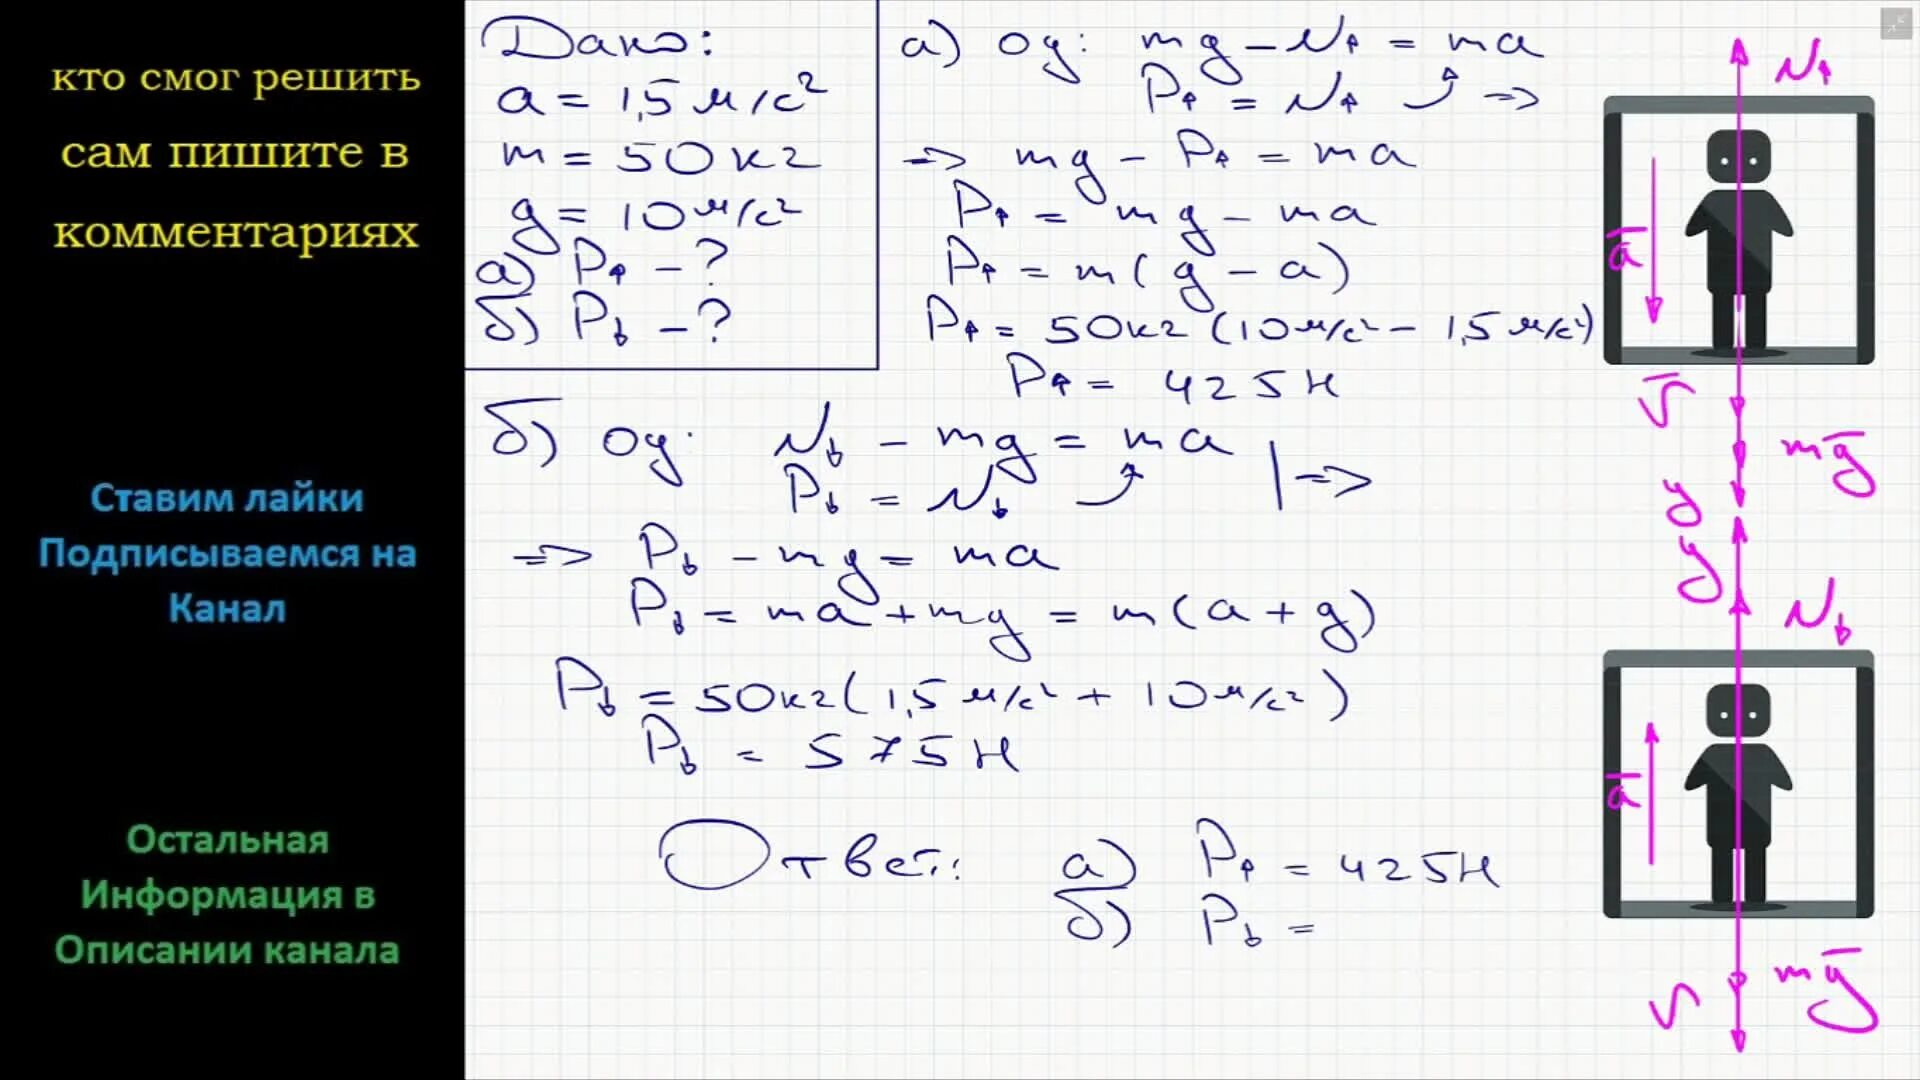 кто смог решить
сам пишите в
комментариях
Ставим лайки
Подписываемся на
Канал
Остальная
Информация в
Описании канала
Дано:
a = 1,5 м/с²
m = 50 кг
g = 10 м/с²
а) P↑ - ?
б) P↓ - ?
а) Oy: mg - N↑ = ma
P↑ = N↑ ⤴ =>
=> mg - P↑ = ma
P↑ = mg - ma
P↑ = m(g - a)
P↑ = 50 кг (10 м/с² - 1,5 м/с²)
P↑ = 425 Н
б) Oy: N↓ - mg = ma
P↓ = N↓ ⤴ | =>
=> P↓ - mg = ma
P↓ = ma + mg = m(a + g)
P↓ = 50 кг (1,5 м/с² + 10 м/с²)
P↓ = 575 Н
Ответ: а) P↑ = 425 Н
б) P↓ =
N↑
a
V
mg
y
y
N↓
a
mg
V